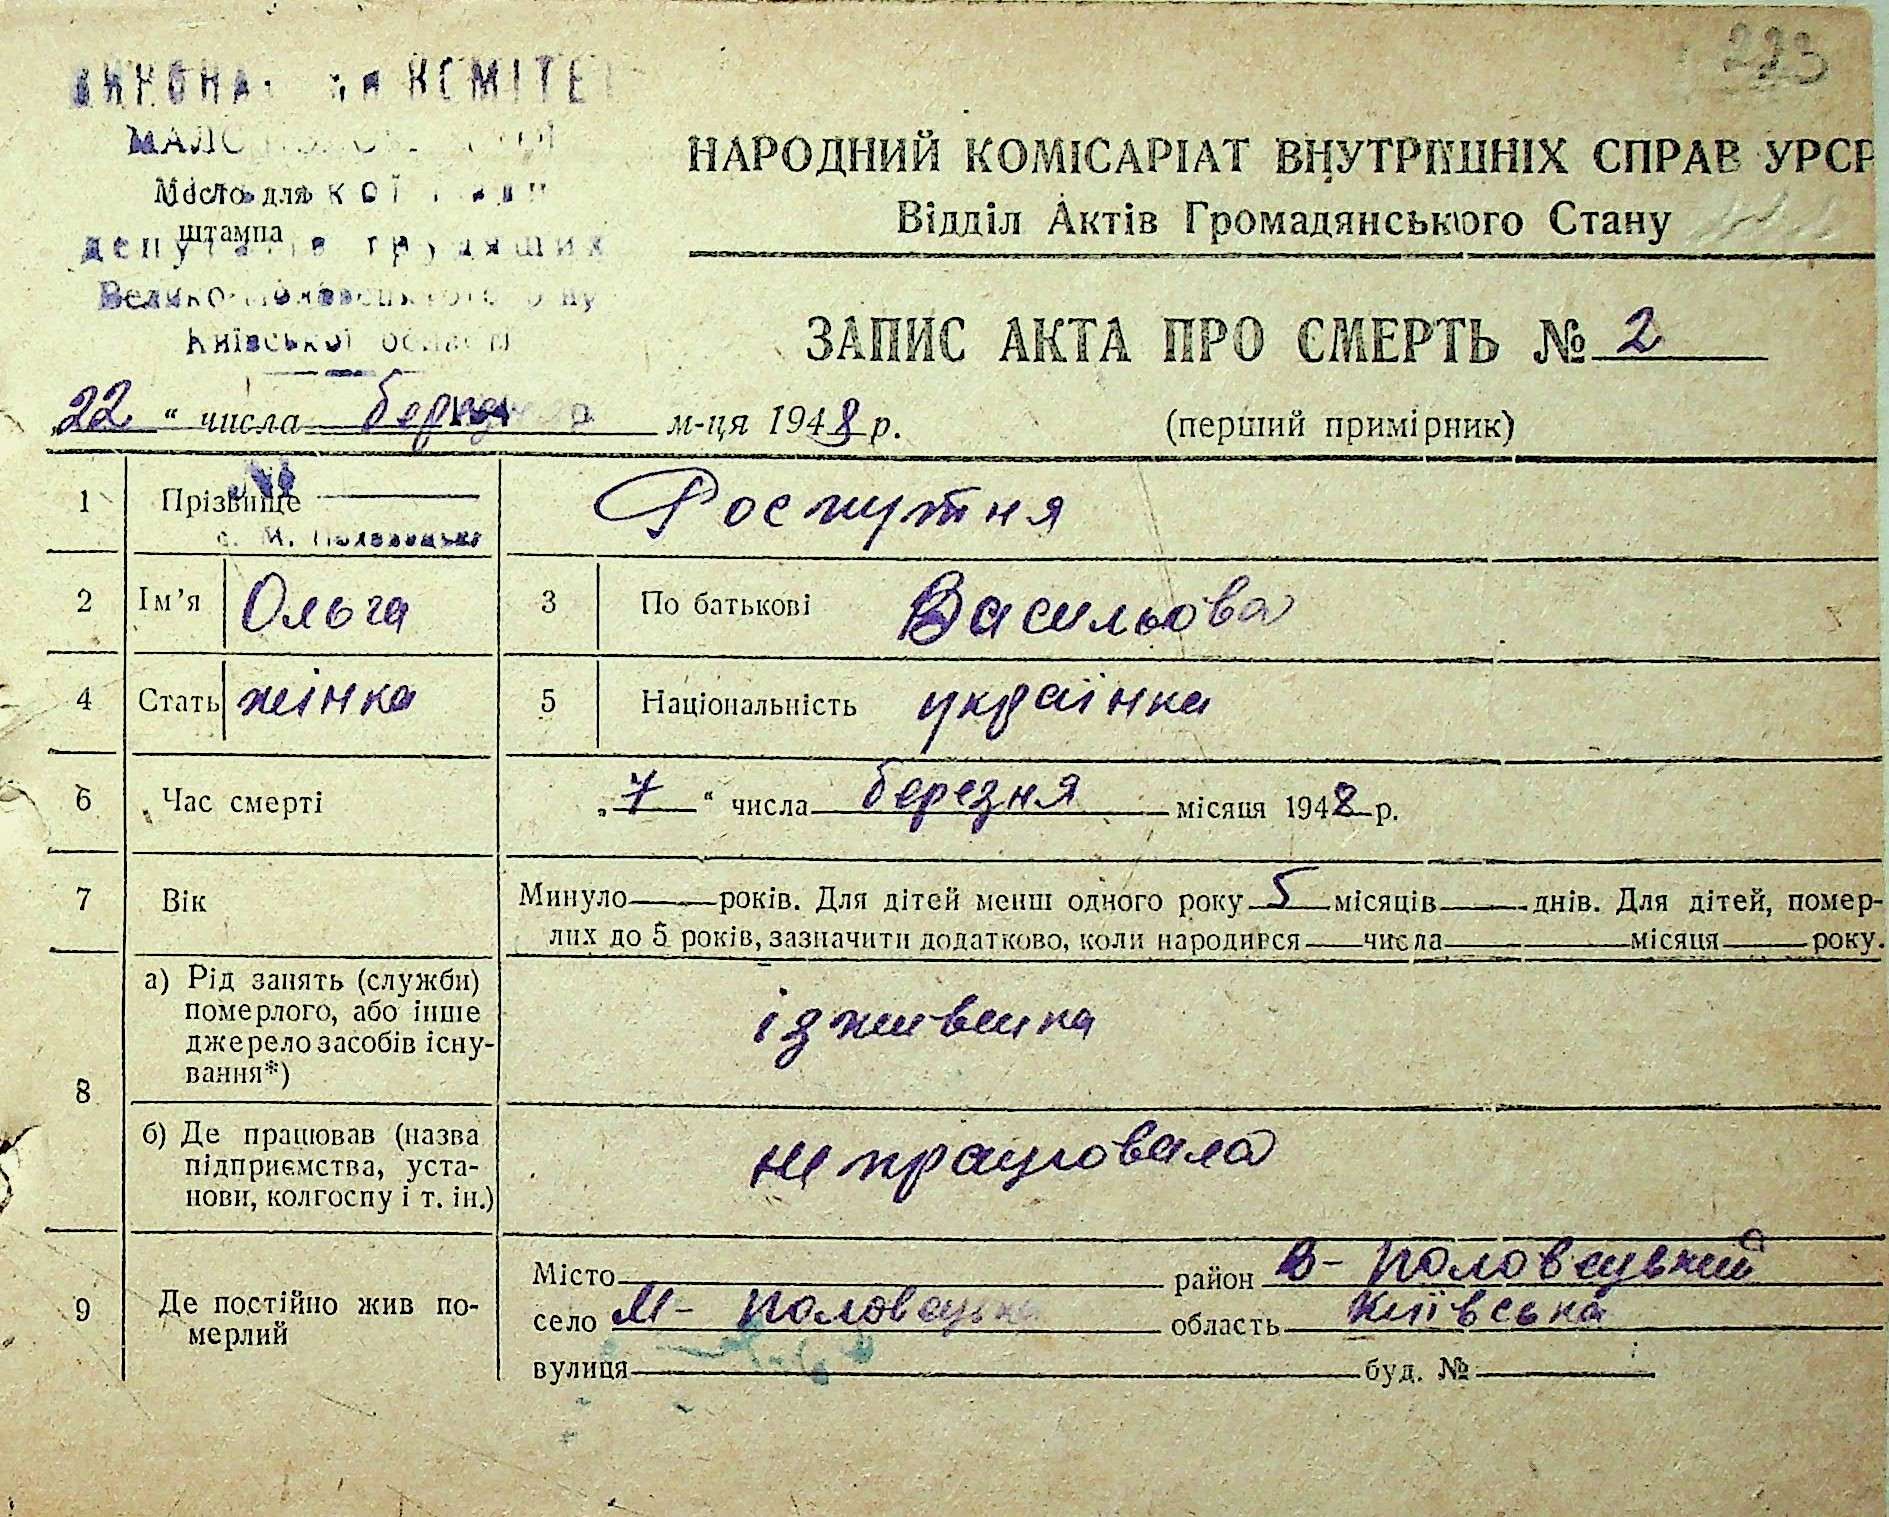 223
КОМІТЕТ
Місто для
штампа
депутатів трудящих
Київської області
НАРОДНИЙ КОМІСАРІАТ ВНУТРІШНІХ СПРАВ УРСР
Відділ Актів Громадянського Стану
ЗАПИС АКТА ПРО СМЕРТЬ № 2
„22“ числа березня м-ця 1948 р. (перший примірник)
№
1 Прізвище Роспутня
с. М. Половецьке
2 Ім'я Ольга 3 По батькові Васильова
4 Стать жінка 5 Національність українка
6 Час смерті „7“ числа березня місяця 1948 р.
7 Вік Минуло — років. Для дітей менш одного року 5 місяців — днів. Для дітей, помер-
лих до 5 років, зазначити додатково, коли народився — числа — місяця — року.
8 а) Рід занять (служби) померлого, або інше джерело засобів існу-
вання*) ізживенка
б) Де працював (назва підприємства, уста-
нови, колгоспу і т. ін.) не працювала
9 Де постійно жив по-
мерлий
Місто — район В- Половецький
село М- Половецьке область Київська
вулиця — буд. № —